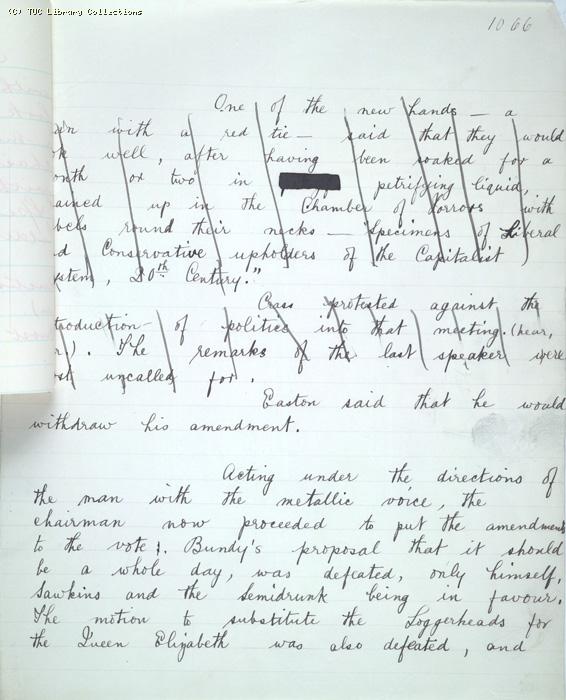 (C) TUC Library Collections
1066
One of the new hands — a
with a red tie — said that they would
well, after having been soaked for a
or two in petrifying liquid,
up in the Chamber of Horrors with
round their necks — Specimens of Liberal
Conservative upholders of the Capitalist
, 20th Century."
Crass protested against the
of politics into that meeting. (hear,
). The remarks of the last speaker were
uncalled for.
Easton said that he would
withdraw his amendment.
Acting under the directions of
the man with the metallic voice, the
chairman now proceeded to put the amendments
to the vote. Bundy's proposal that it should
be a whole day, was defeated, only himself,
Sawkins and the semidrunk being in favour.
The motion to substitute the Loggerheads for
the Queen Elizabeth was also defeated, and